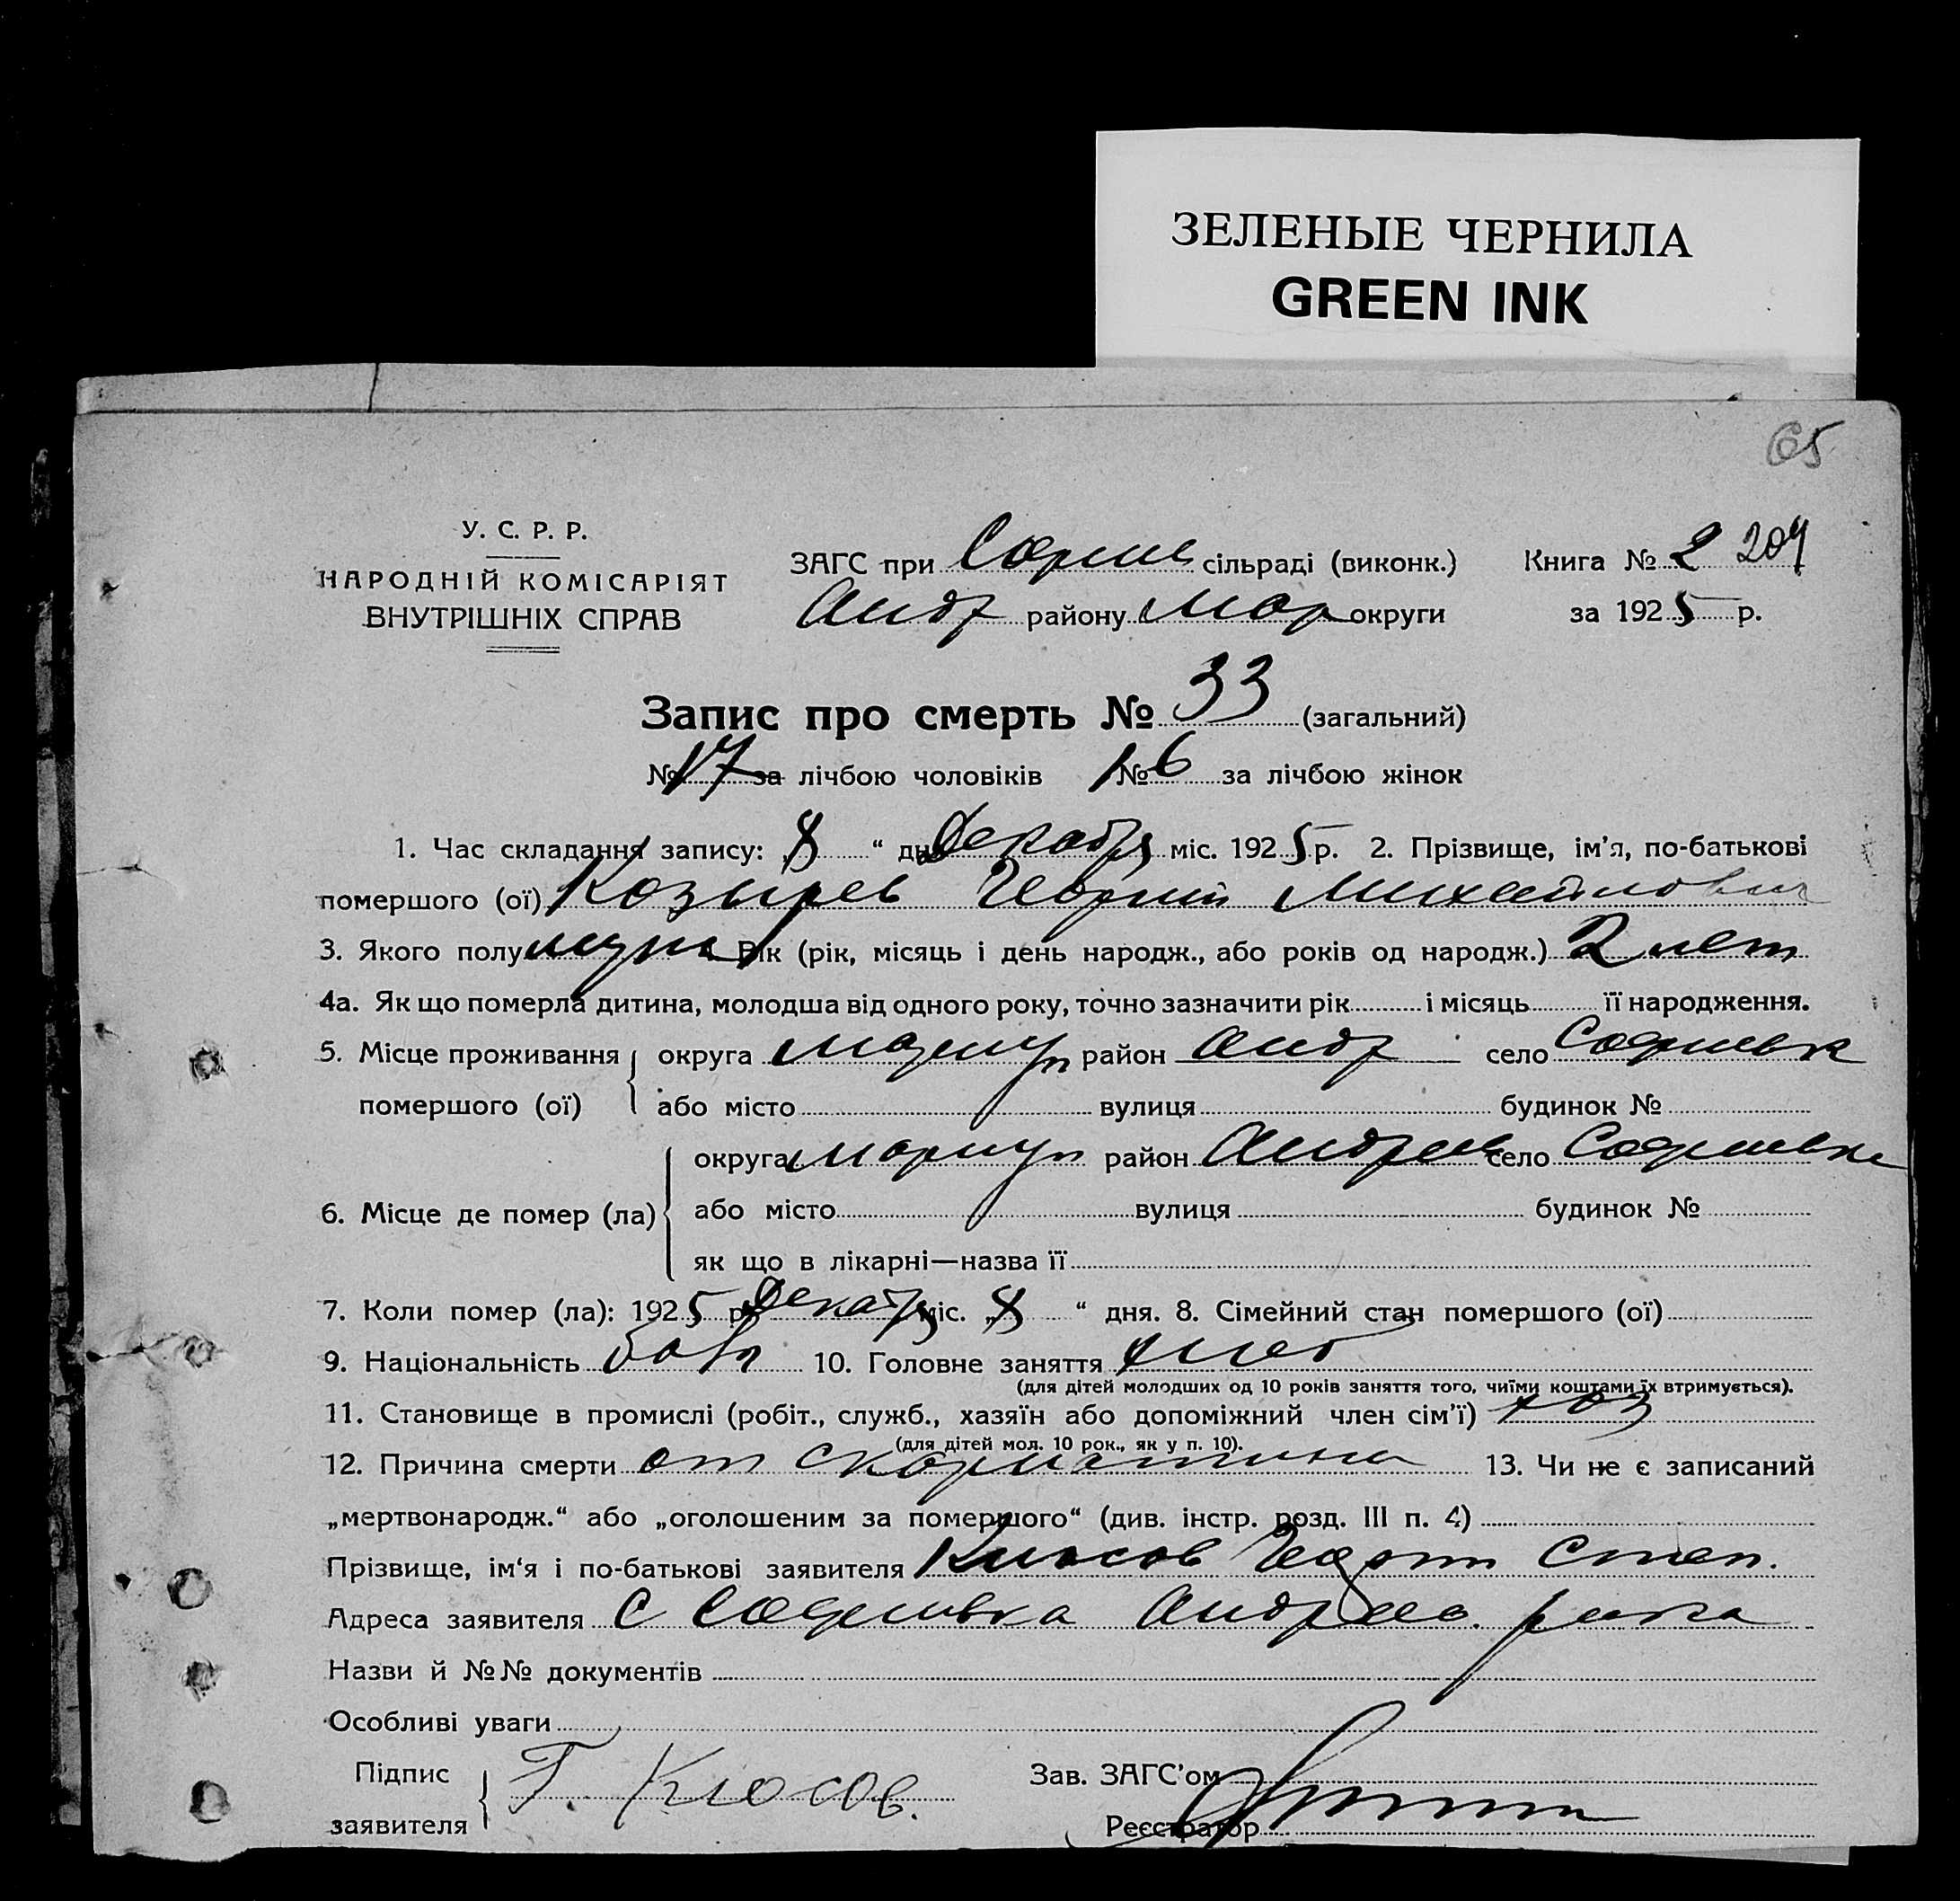 ЗЕЛЕНЫЕ ЧЕРНИЛА
GREEN INK
65
У. С. Р. Р.
НАРОДНІЙ КОМІСАРІЯТ
ВНУТРІШНІХ СПРАВ
ЗАГС при сільраді (виконк.) Книга № 2 204
Андр району Мар округи за 1925 р.
Запис про смерть № 33 (загальний)
№ 17 за лічбою чоловіків № 16 за лічбою жінок
1. Час складання запису: „8“ дня Декабря міс. 1925 р. 2. Прізвище, ім'я, по-батькові
помершого (ої) Козырев Георгий Михайлович
3. Якого полу муж 4. Вік (рік, місяць і день народж., або років од народж.) 2 лет
4а. Як що померла дитина, молодша від одного року, точно зазначити рік і місяць її народження.
5. Місце проживання помершого (ої) округа Мариуп район Андр село
або місто вулиця будинок №
6. Місце де помер (ла) округа Мариуп район Андреев село
або місто вулиця будинок №
як що в лікарні—назва її
7. Коли помер (ла): 1925 р. Декабря міс. „8“ дня. 8. Сімейний стан помершого (ої)
9. Національність болг 10. Головне заняття хлеб
(для дітей молодших од 10 років заняття того, чиїми коштами їх втримується).
11. Становище в промислі (робіт., служб., хазяїн або допоміжний член сім'ї) хоз
(для дітей мол. 10 рок., як у п. 10).
12. Причина смерти от скорлатина 13. Чи не є записаний
„мертвонародж.“ або „оголошеним за помершого“ (див. інстр. розд. III п. 4)
Прізвище, ім'я і по-батькові заявителя Кюсов Георги Степ.
Адреса заявителя с Андреев. р
Назви й №№ документів
Особливі уваги
Підпис заявителя Г. Кюсов.
Зав. ЗАГС'ом
Реєстратор